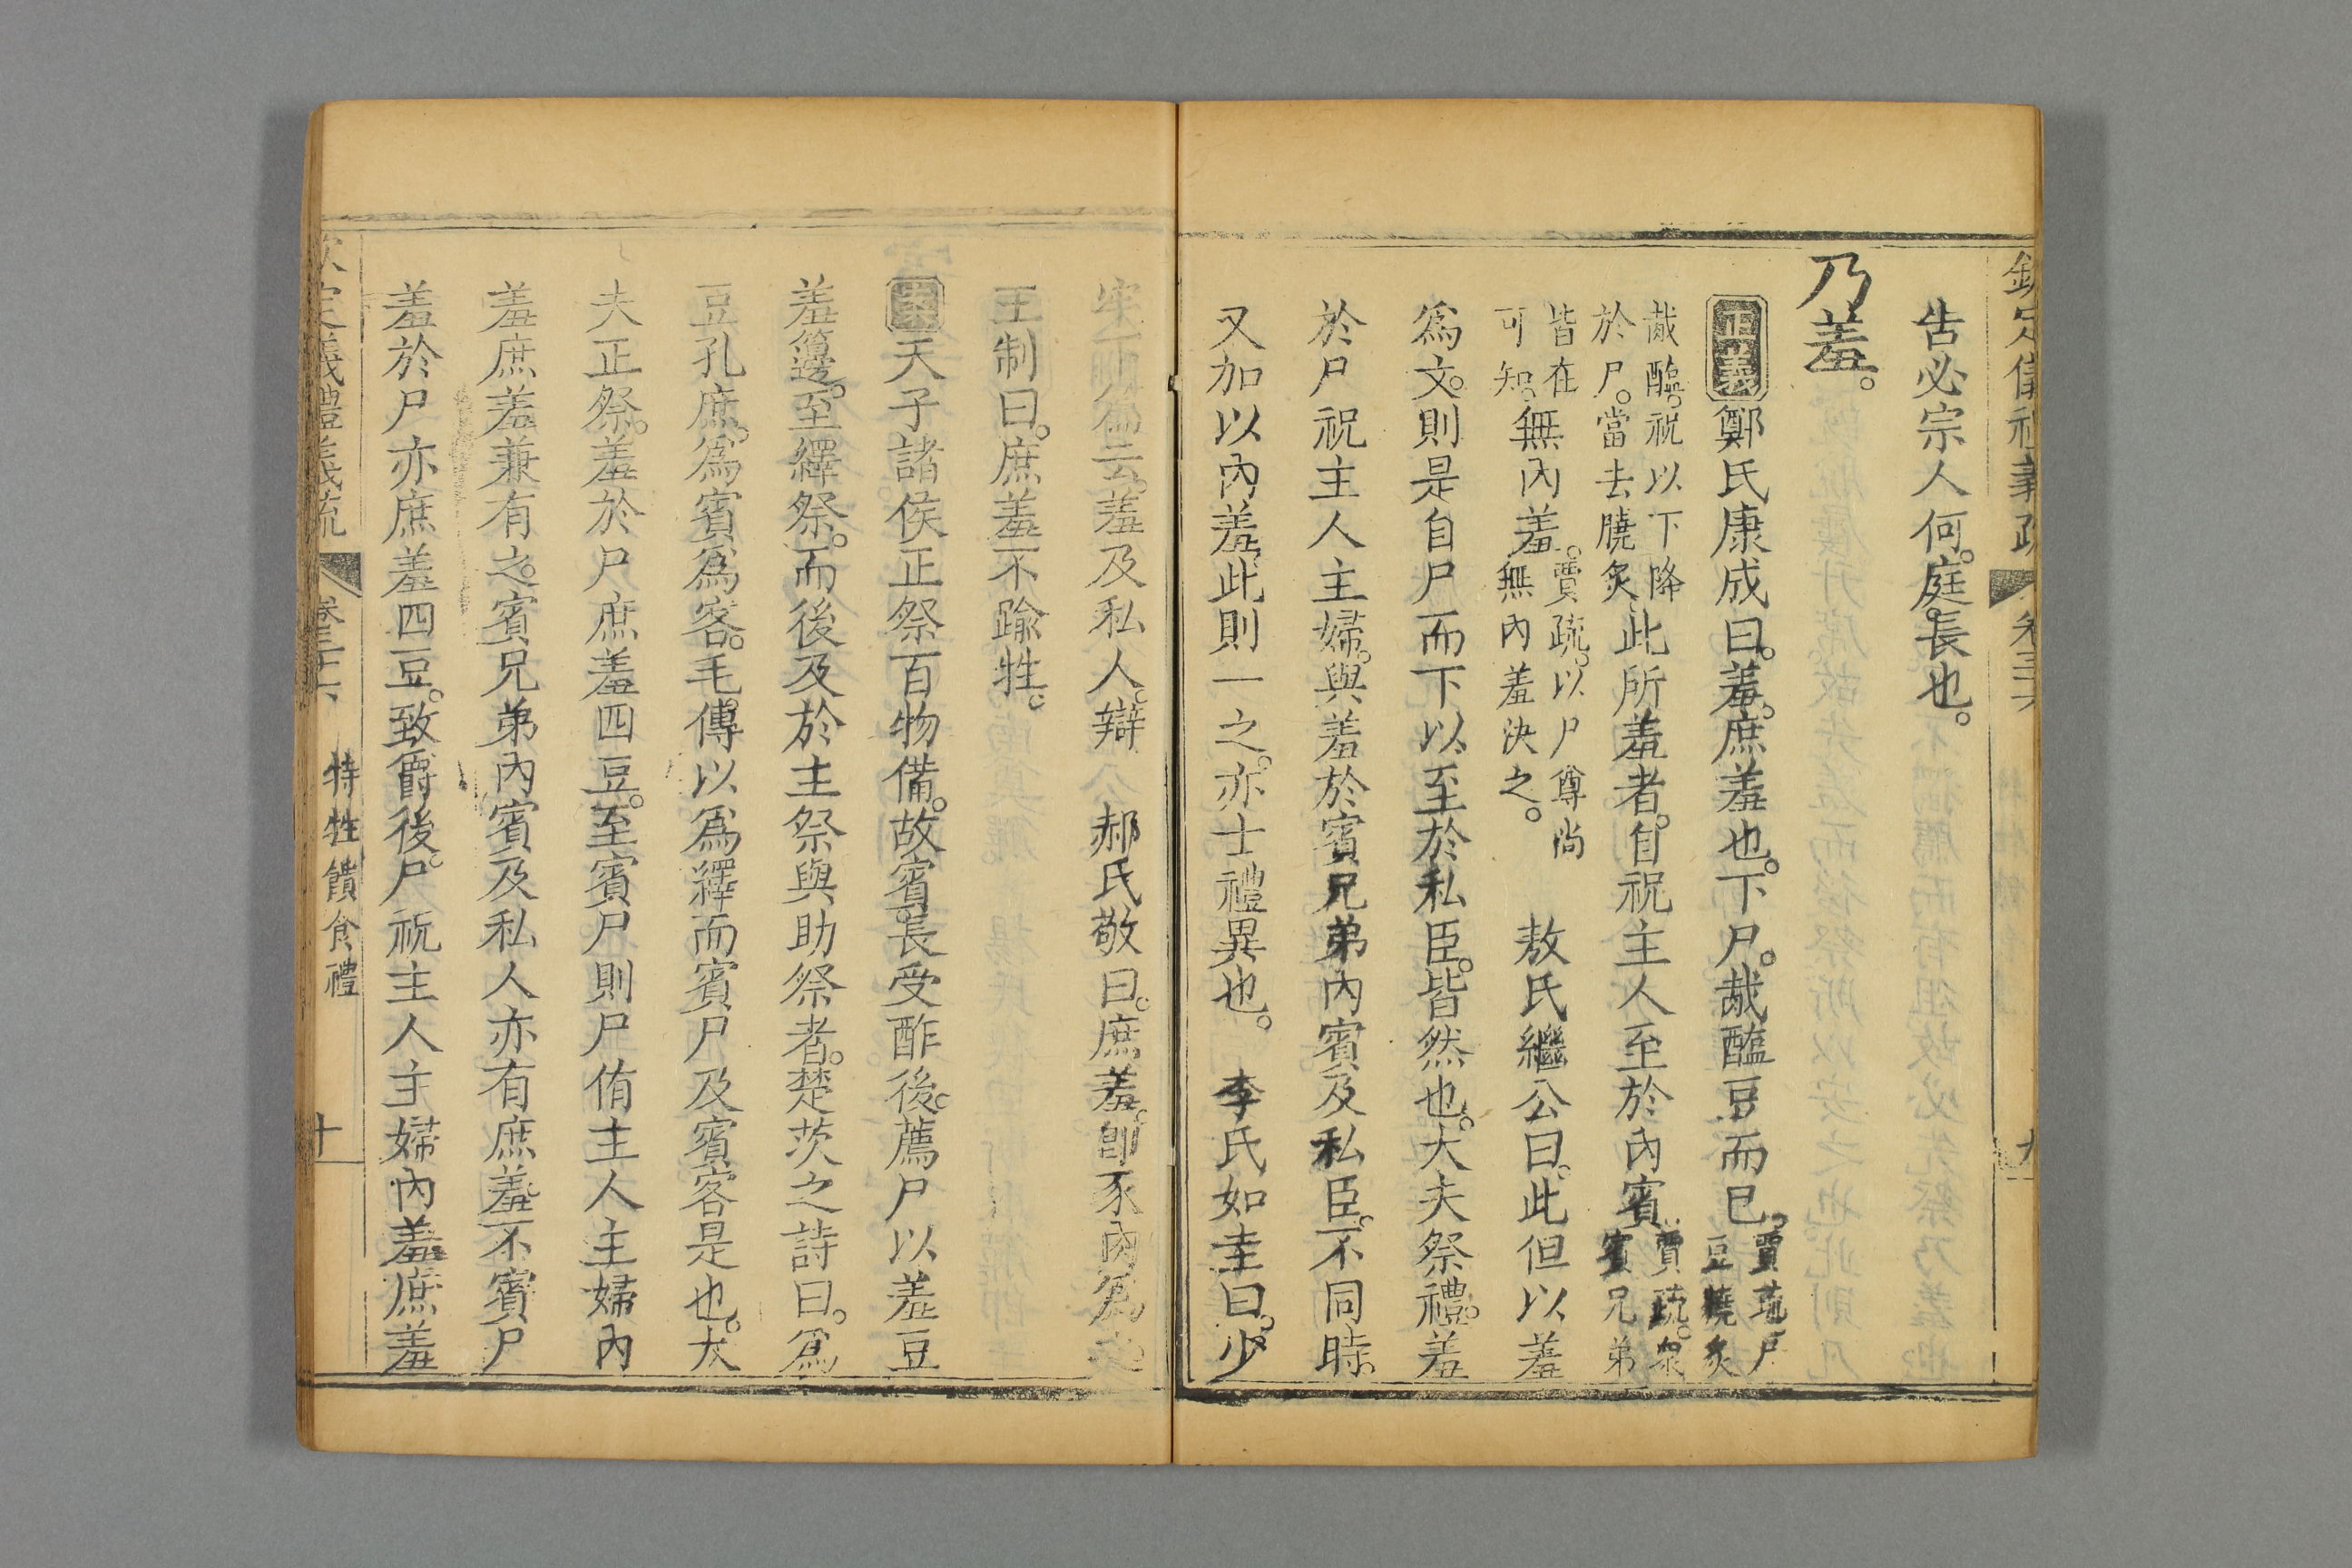 告必宗人何。庭長也。
乃羞。
正義鄭氏康成曰。羞。庶羞也。下尸。胾醢豆而巳。賈疏尸
豆膮炙
胾醢。祝以下降
於尸。當去膮炙。此所羞者。自祝主人至於內賓賈疏。眾
賓兄弟
皆在
可知。無內羞。賈疏。以尸尊尚
無內羞決之。敖氏繼公曰。此但以羞
爲文。則是自尸而下以至於私臣。皆然也。大夫祭禮。羞
於尸祝主人主婦。與羞於賓兄弟內賓及私臣。不同時。
又加以內羞。此則一之。亦士禮異也。李氏如圭曰。少
牢下篇云。羞及私人。辯。郝氏敬曰。庶羞。卽豕肉爲之
王制曰。庶羞不踰牲。
案天子諸侯正祭百物備。故賓長受酢後。薦尸以羞豆
羞籩。至繹祭。而後及於主祭與助祭者。楚茨之詩曰。爲
豆孔庶。爲賓爲客。毛傳以爲繹而賓尸及賓客是也。大
夫正祭。羞於尸庶羞四豆。至賓尸則尸侑主人主婦內
羞庶羞兼有之。賓兄弟內賓及私人亦有庶羞。不賓尸
羞於尸亦庶羞四豆。致爵後。尸祝主人主婦內羞庶羞
特牲饋食禮
十